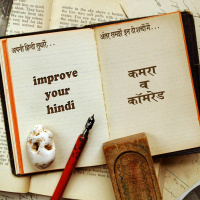 अपनी हिन्दी सुधारें...
improve
your
hindi
अंतर समझें इन शब्दों में...
कमरा
व
कॉमरेड